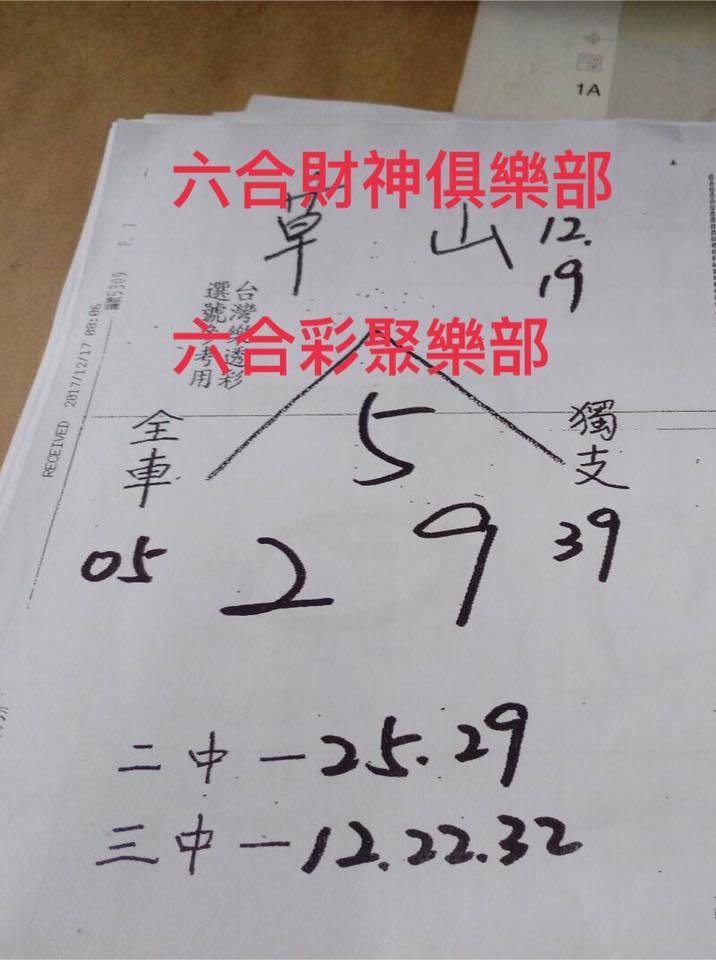 1A
六合財神俱樂部
草山 12.
19
RECEIVED 2017/12/17 08:06 5309 P. 7
台灣樂透彩
選號參考用
六合彩聚樂部
全車
獨支
5
05
2 9
39
二中一25.29
三中一12.22.32